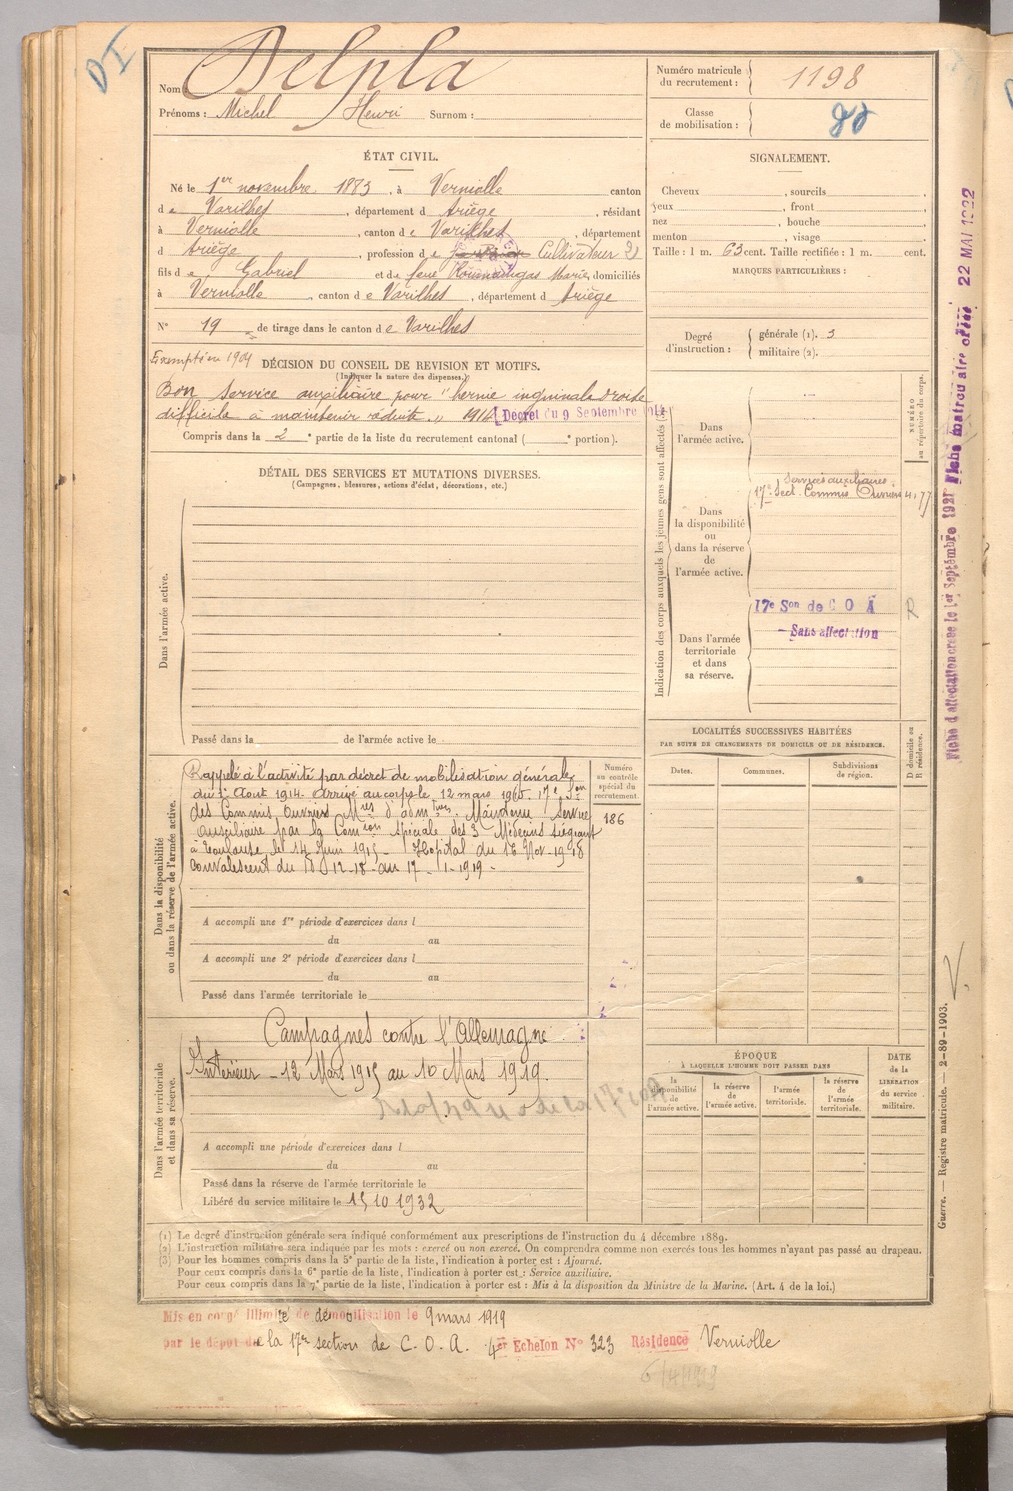 DI
Nom : Delpla
Prénoms : Michel Henri Surnom :
Numéro matricule du recrutement : 1198
Classe de mobilisation :
ÉTAT CIVIL.
Né le 1er novembre 1883, à Verniolle canton
de Varilhes, département d Ariège, résidant
à Verniolle, canton de Varilhes, département
d Ariège, profession de Cultivateur 2)
fils de Gabriel et de feue Marie, domiciliés
à Verniolle, canton de Varilhes, département d Ariège
N° 19 de tirage dans le canton de Varilhes
Exempté en 1904
DÉCISION DU CONSEIL DE REVISION ET MOTIFS.
(Indiquer la nature des dispenses.)
Bon service auxiliaire pour "hernie inguinale droite
difficile à maintenir réduite" 1914 [Décret du 9 Septembre 1914]
Compris dans la 2e partie de la liste du recrutement cantonal ( e portion).
DÉTAIL DES SERVICES ET MUTATIONS DIVERSES.
(Campagnes, blessures, actions d'éclat, décorations, etc.)
Dans l'armée active.
Passé dans la de l'armée active le
Dans la disponibilité ou dans la réserve de l'armée active.
Rappelé à l'activité par décret de mobilisation générale
du 1er Août 1914. Arrivé au corps le 12 mars 1915. 17e Son
des Commis Ouvriers Mres d'admtives. Maintenu Service
Auxiliaire par la Comon Spéciale des 3 Médecins siégeant
à Toulouse, le 14 Juin 1915 - Hopital du 16 Nov-1918
Convalescent du 12-18- au 17-1-1919-
Numéro au contrôle spécial du recrutement.
186
A accompli une 1re période d'exercices dans l
du au
A accompli une 2e période d'exercices dans l
du au
Passé dans l'armée territoriale le
Dans l'armée territoriale et dans sa réserve.
Campagnes contre l'Allemagne
Intérieur - 12 Mars 1915 au 10 Mars 1919.
A accompli une période d'exercices dans l
du au
Passé dans la réserve de l'armée territoriale le
Libéré du service militaire le 15 10 1932
SIGNALEMENT.
Cheveux , sourcils ,
yeux , front ,
nez , bouche ,
menton , visage
Taille : 1 m. 63 cent. Taille rectifiée : 1 m. cent.
MARQUES PARTICULIÈRES :
Degré d'instruction : générale (1). 3
militaire (2).
Indication des corps auxquels les jeunes gens sont affectés
NUMÉRO au répertoire du corps.
Dans l'armée active.
Services auxiliaires
17e Sect. Commis Ouvriers
Dans la disponibilité ou dans la réserve de l'armée active.
17e Son de C O A
R
- Sans affectation
Dans l'armée territoriale et dans sa réserve.
LOCALITÉS SUCCESSIVES HABITÉES
PAR SUITE DE CHANGEMENTS DE DOMICILE OU DE RÉSIDENCE.
Dates. Communes. Subdivisions de région. D domicile ou R résidence.
ÉPOQUE
À LAQUELLE L'HOMME DOIT PASSER DANS
la disponibilité de l'armée active. la réserve de l'armée active. l'armée territoriale. la réserve de l'armée territoriale.
DATE de la LIBÉRATION du service militaire.
Fiche d'affectation créée le 1er Septembre 1921 Fiche matriculaire créée 22 MAI 1922
Guerre. — Registre matricule. — 2-89-1903.
(1) Le degré d'instruction générale sera indiqué conformément aux prescriptions de l'instruction du 4 décembre 1889.
(2) L'instruction militaire sera indiquée par les mots : exercé ou non exercé. On comprendra comme non exercés tous les hommes n'ayant pas passé au drapeau.
(3) Pour les hommes compris dans la 5e partie de la liste, l'indication à porter est : Ajourné.
Pour ceux compris dans la 6e partie de la liste, l'indication à porter est : Service auxiliaire.
Pour ceux compris dans la 7e partie de la liste, l'indication à porter est : Mis à la disposition du Ministre de la Marine. (Art. 4 de la loi.)
Mis en congé illimité de démobilisation le 9 mars 1919
par le dépôt de la 17e section de C. O. A. 4er Echelon N° 323 Résidence Verniolle
6/4/1919